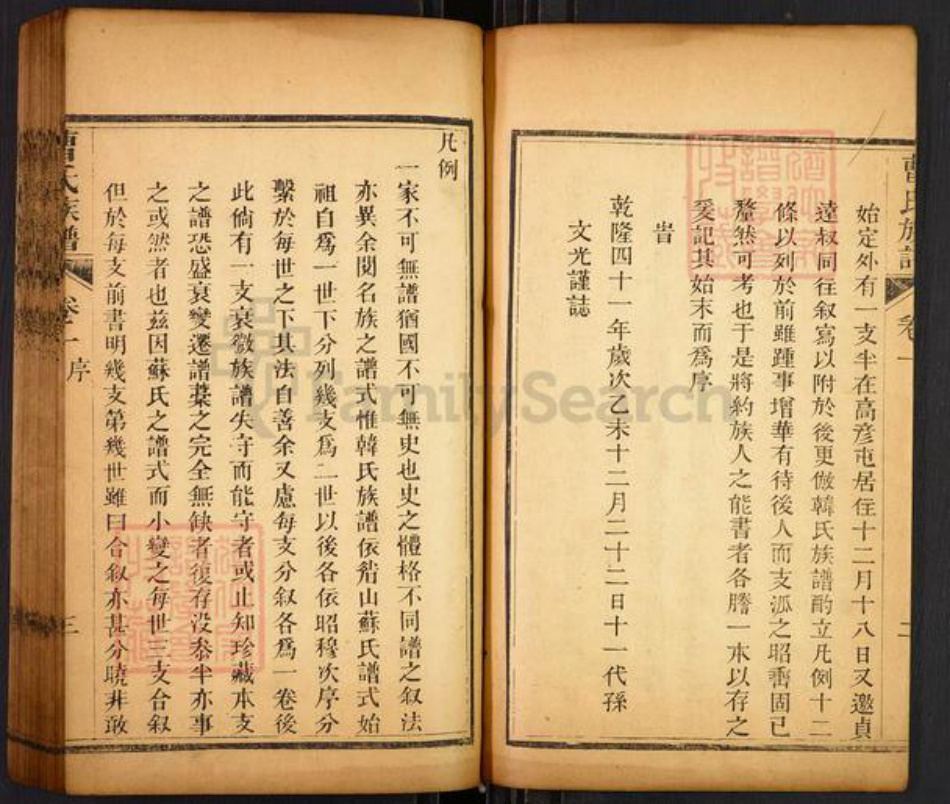 曹氏族譜
卷一
二
始定外有一支半在高彥屯居住十二月十八日又邀貞
達叔同往叙寫以附於後更倣韓氏族譜酌立凡例十二
條以列於前雖踵事增華有待後人而支派之昭穆固已
釐然可考也于是將約族人之能書者各謄一本以存之
爰記其始末而爲序
旹
乾隆四十一年歲次乙未十二月二十二日十一代孫
文光謹誌
凡例
一家不可無譜猶國不可無史也史之體格不同譜之叙法
亦異余閱名族之譜式惟韓氏族譜依眉山蘇氏譜式始
祖自爲一世下分列幾支爲二世以後各依昭穆次序分
繫於每世之下其法自善余又慮每支分叙各爲一卷後
此倘有一支衰微族譜失守而能守者或止知珍藏本支
之譜恐盛衰變遷譜葉之完全無缺者復存没叅半亦事
之或然者也兹因蘇氏之譜式而小變之每世三支合叙
但於每支前書明幾支第幾世雖曰合叙亦甚分曉非敢
曹氏族譜
卷一
序
三
FamilySearch